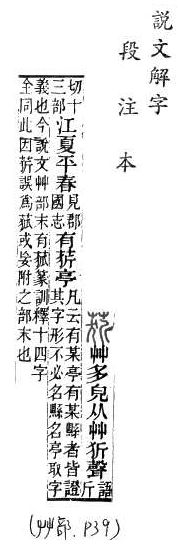 說文解字
段注本
艸多皃从艸㹞聲語斤
切十三部江夏平春見郡國志有亭凡云有某亭有某縣者皆證其字形不必名縣名亭取字
義也今說文艸部末有篆訓釋十四字
全同此因誤爲或妄附之部末也
(艸部. P39)